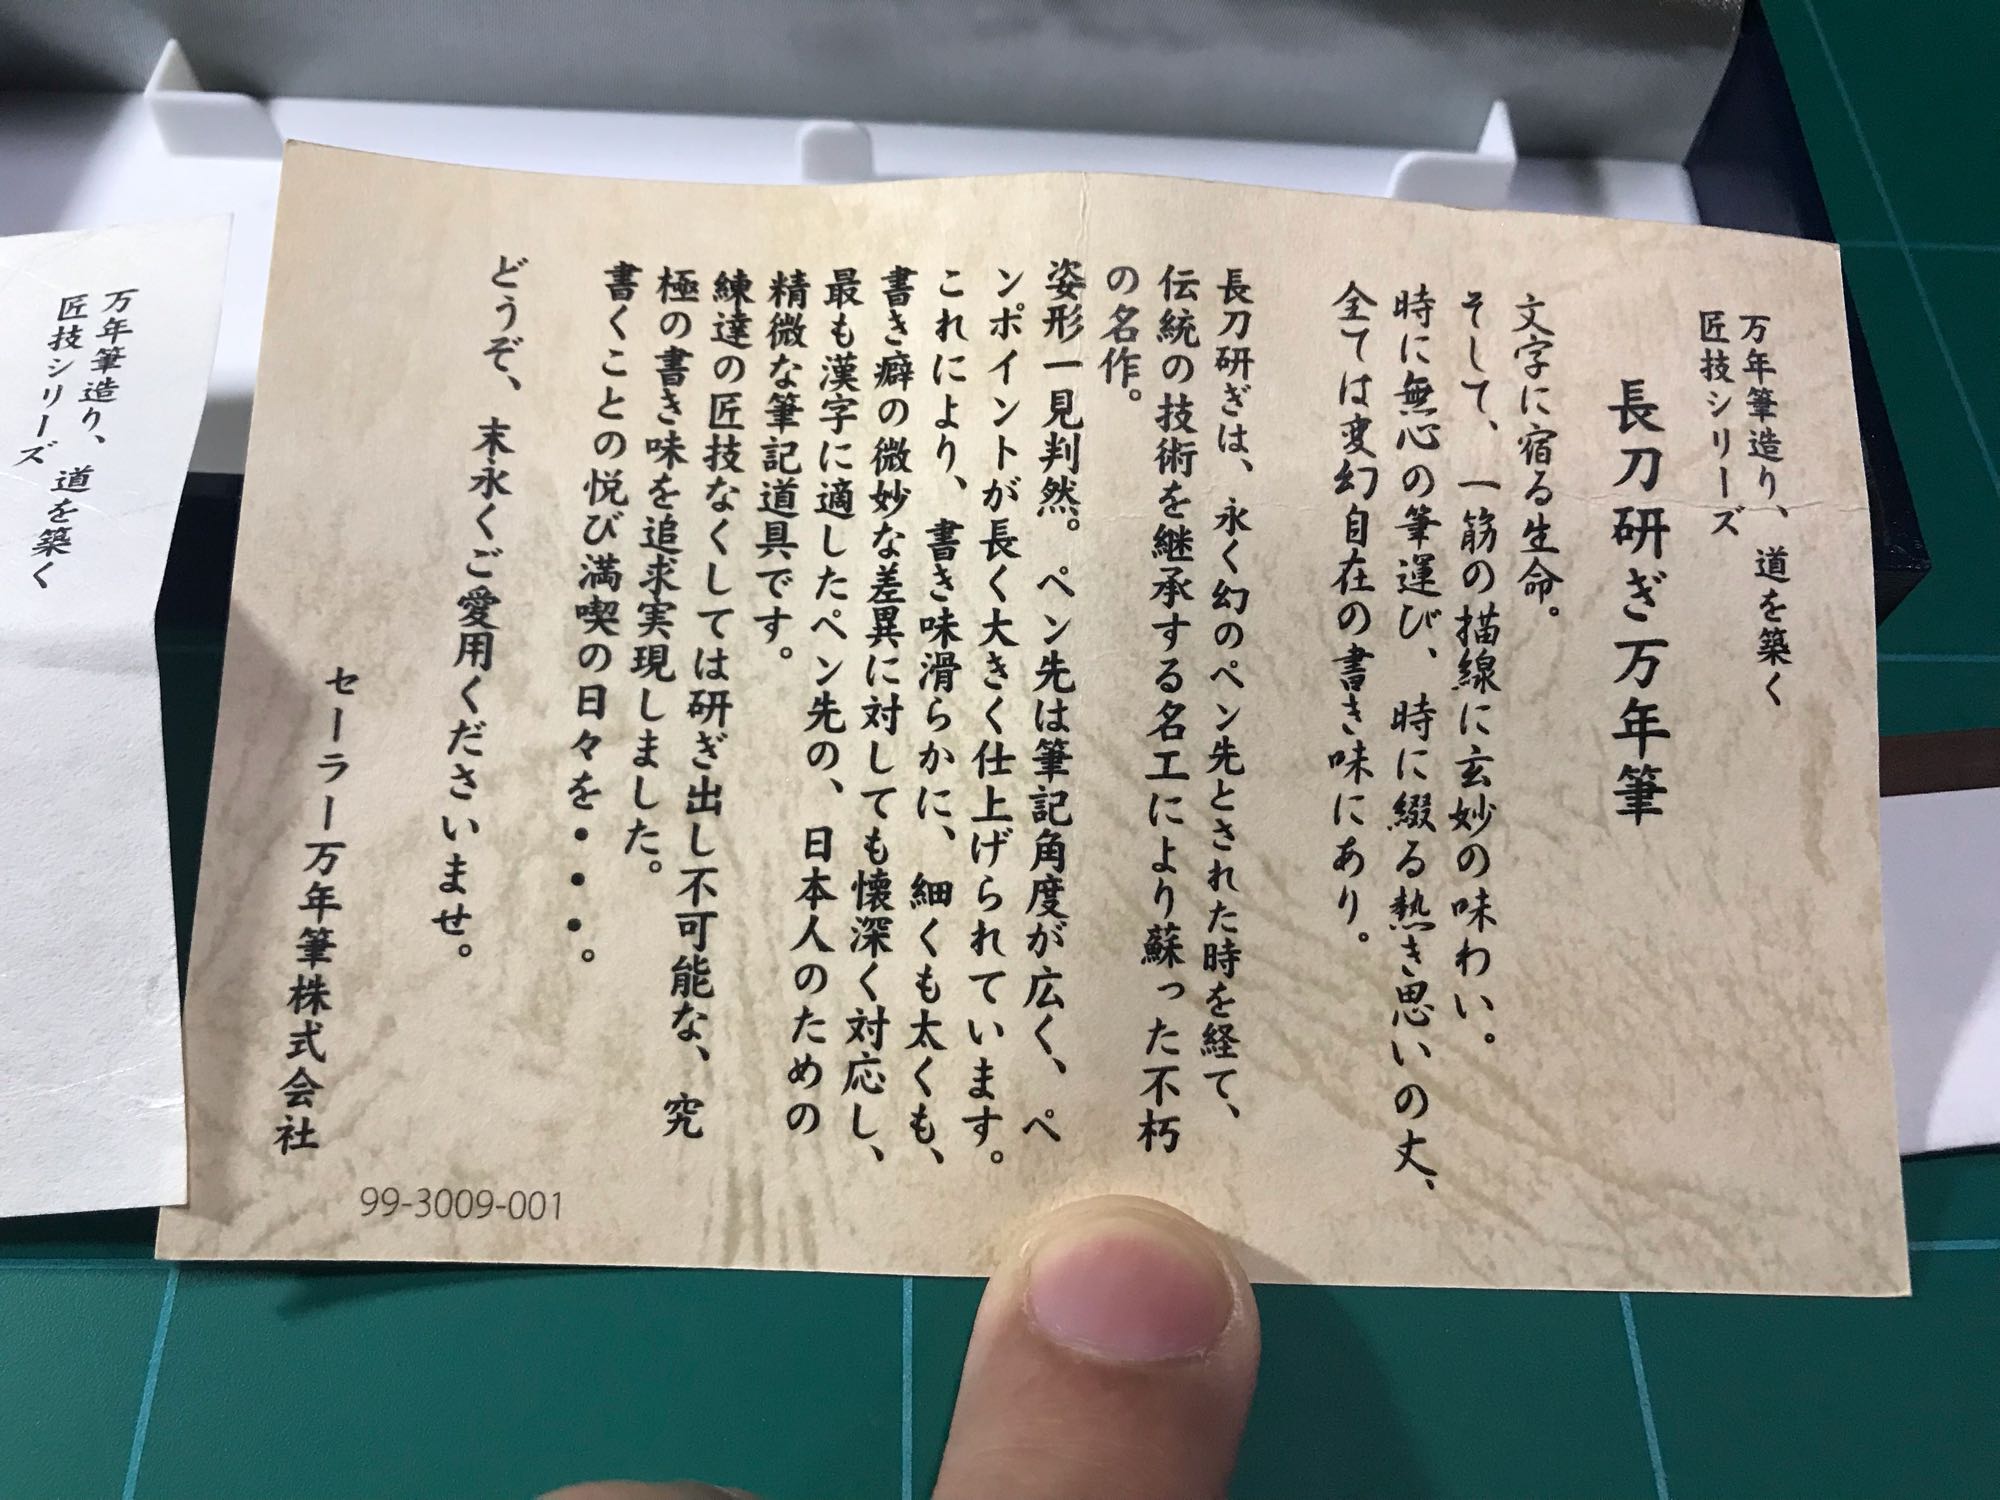 万年筆造り、道を築く
匠技シリーズ
長刀研ぎ万年筆
文字に宿る生命。
そして、一筋の描線に玄妙の味わい。
時に無心の筆運び、時に綴る熱き思いの丈、
全ては変幻自在の書き味にあり。
長刀研ぎは、永く幻のペン先とされた時を経て、
伝統の技術を継承する名工により蘇った不朽
の名作。
姿形一見判然。ペン先は筆記角度が広く、ペ
ンポイントが長く大きく仕上げられています。
これにより、書き味滑らかに、細くも太くも、
書き癖の微妙な差異に対しても懐深く対応し、
最も漢字に適したペン先の、日本人のための
精微な筆記道具です。
練達の匠技なくしては研ぎ出し不可能な、究
極の書き味を追求実現しました。
書くことの悦び満喫の日々を・・・。
どうぞ、末永くご愛用くださいませ。
セーラー万年筆株式会社
99-3009-001
万年筆造り、道を築く
匠技シリーズ